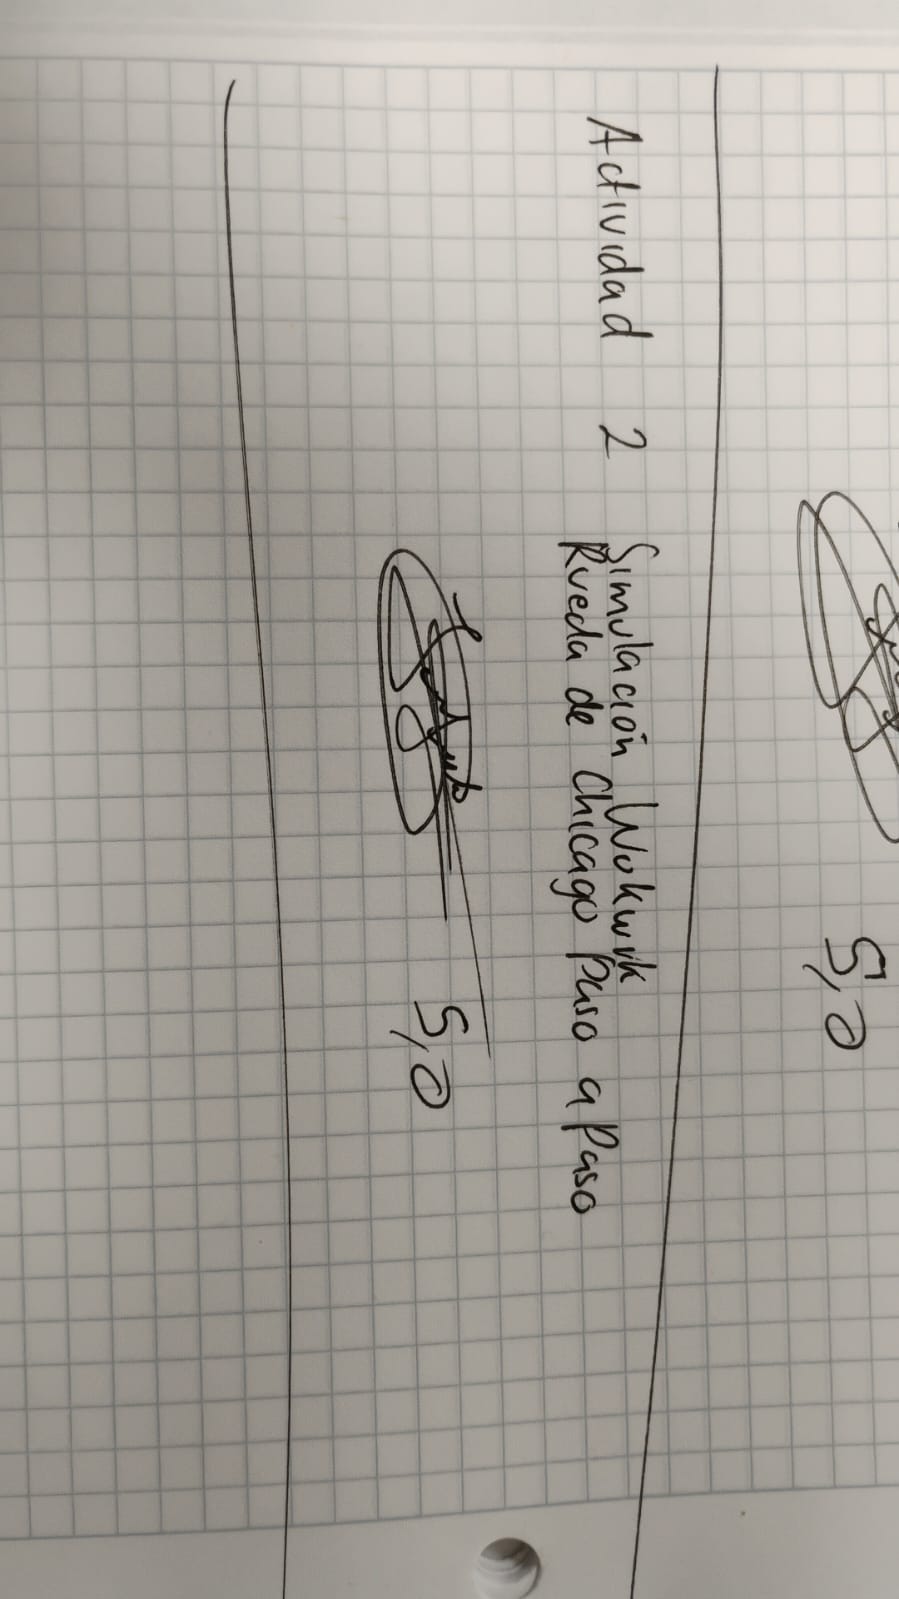 5,0
Actividad 2 Simulación Wokwik
Rueda de Chicago Paso a Paso
5,0